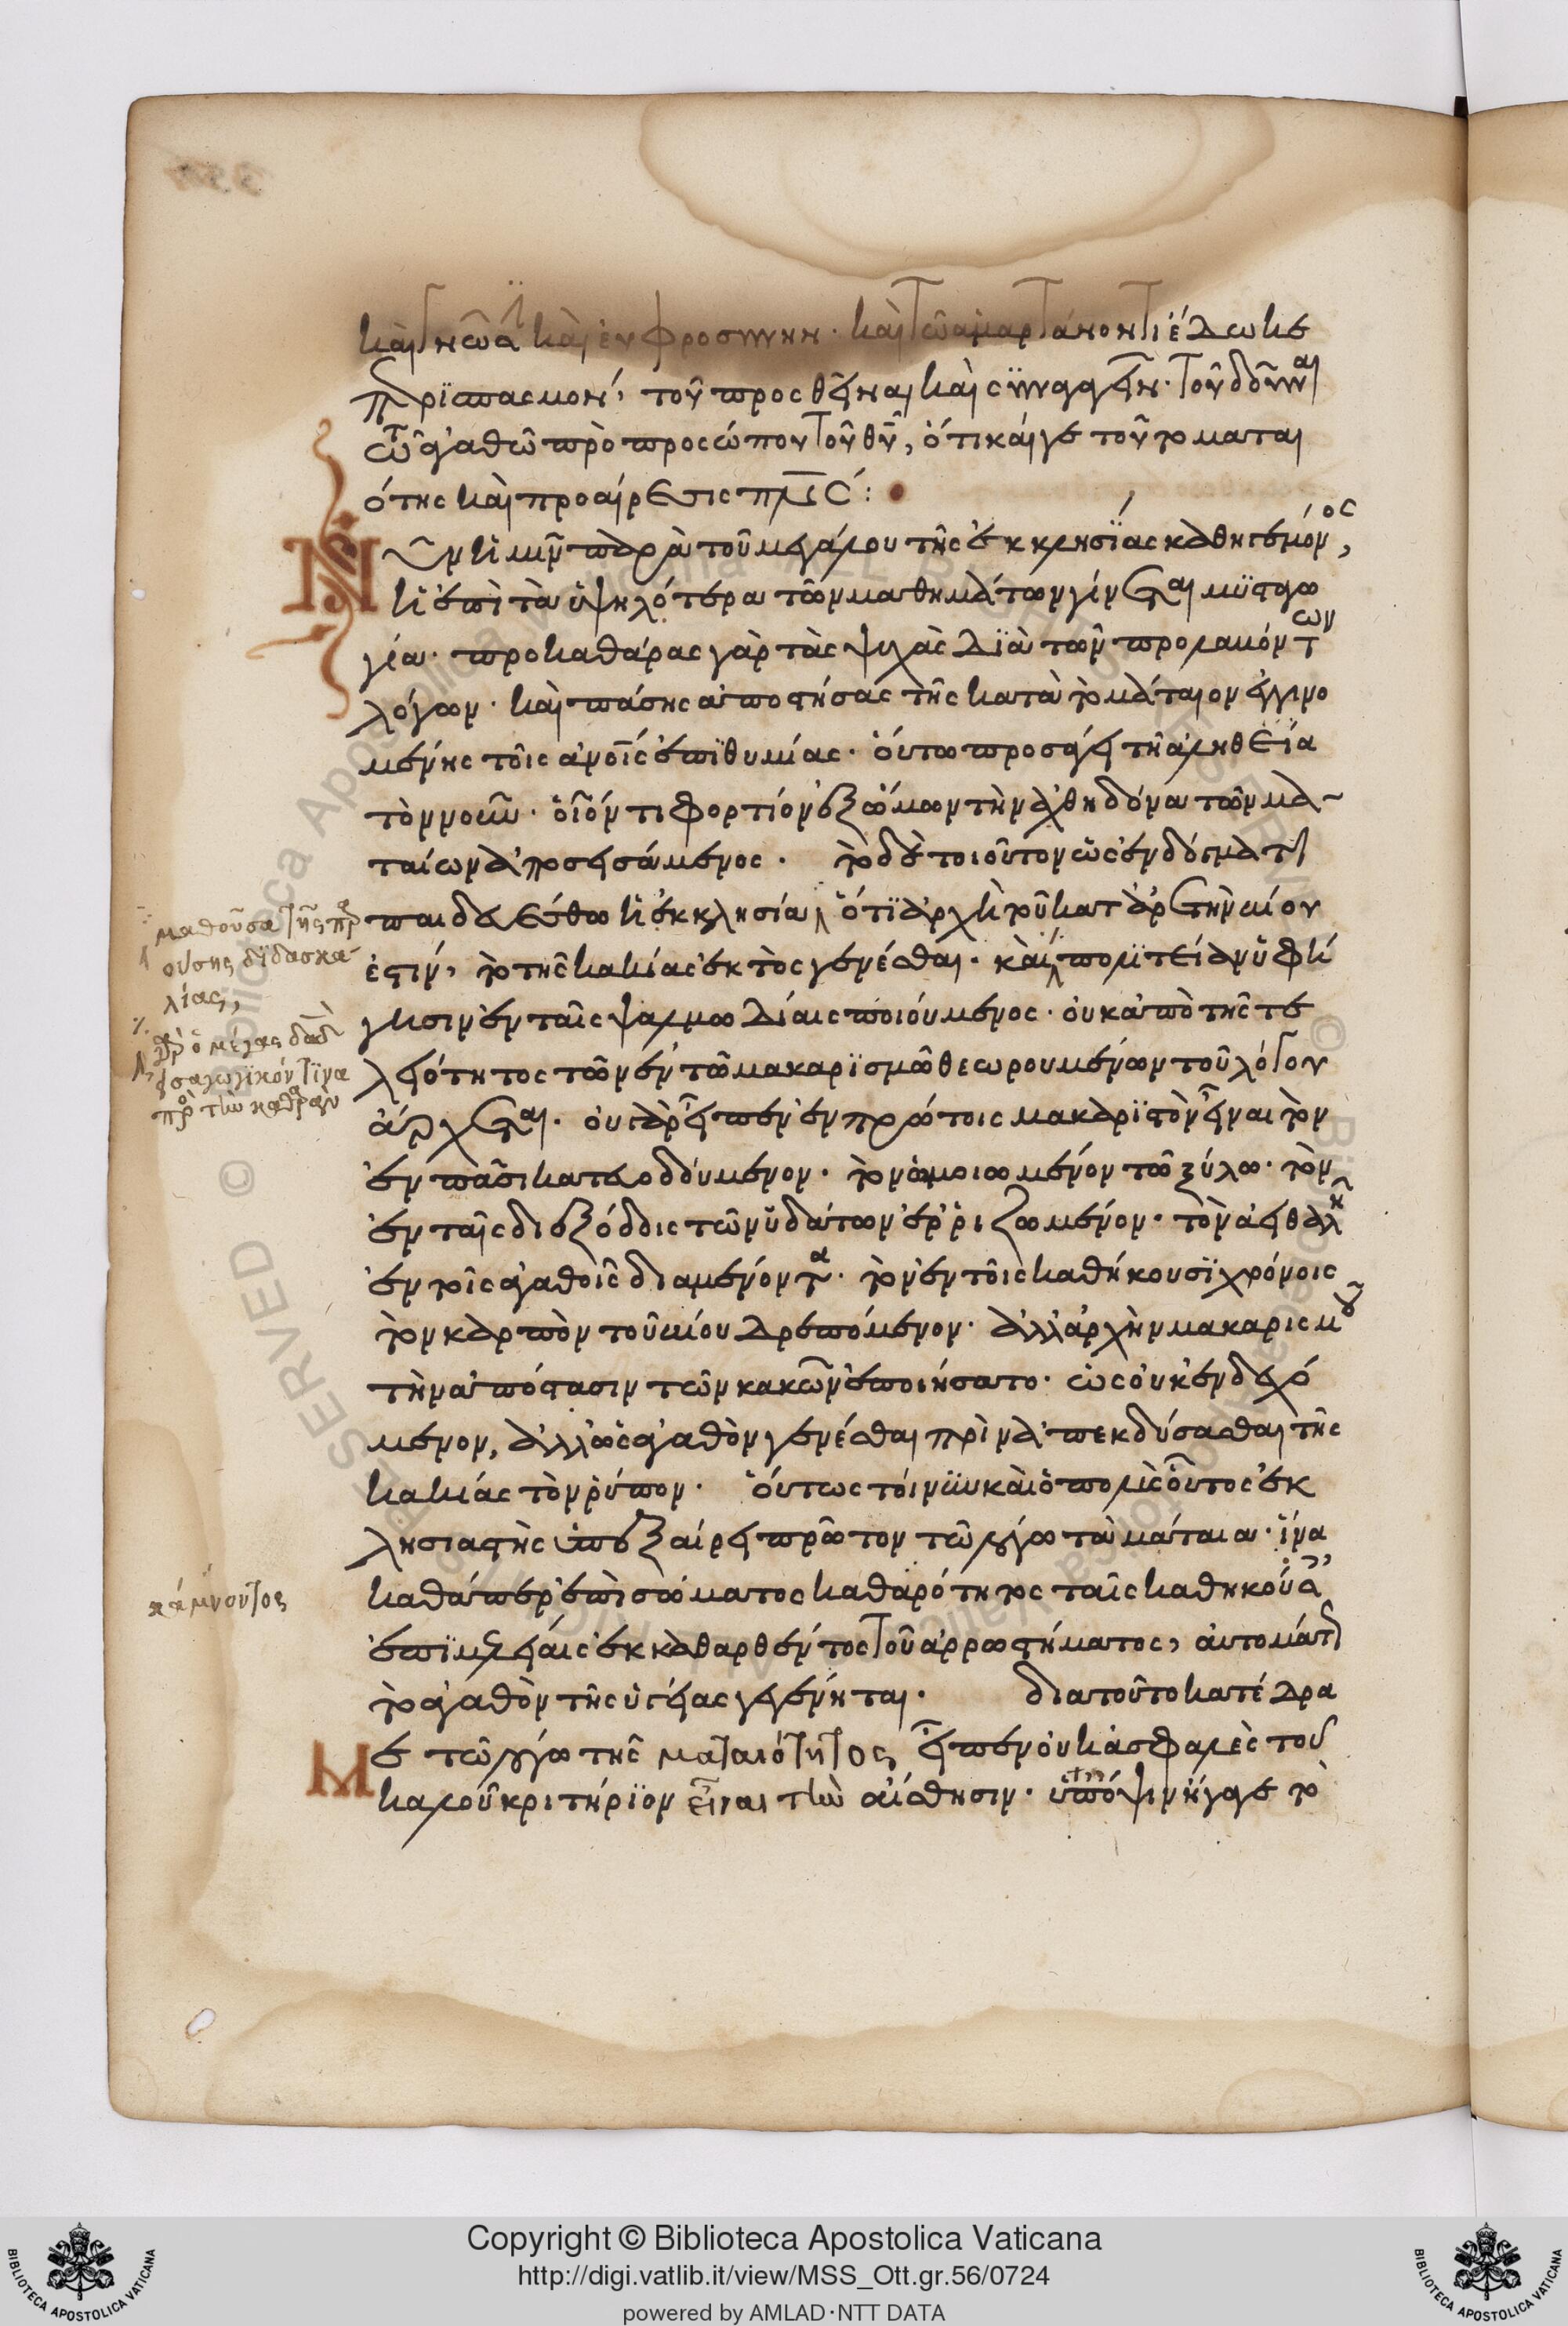 καὶ γνῶσιν καὶ εὐφροσύνην· καὶ τῶ ἁμαρτάνοντι ἔδωκε
περϊσπασμὸν, τοῦ προσθεῖναι καὶ συναγαγεῖν· τοῦ δοῦναι
τῶ ἀγαθῶ πρὸ προσώπου τοῦ θῦ, ὅτι καίγε τοῦτο μαται
ότης καὶ προαίρεσις πνς:
Νῦν ἡμῖν παρὰ τοῦ μεγάλου τῆς ἐκκλησίας καθηγεμόνος,
ἡ ἐπὶ τὰ ὑψηλότερα τῶν μαθημάτων γίνεται μυσταγω
γία· προκαθάρας γὰρ τὰς ψυχὰς διὰ τῶν προλαβόντων
λόγων· καὶ πάσης ἀποστήσας τῆς κατὰ τὸ μάταιον ἐγγινο
μένης τοῖς ἀνοις ἐπιθυμίας· οὕτω προσάγει τῆ ἀληθεία
τὸν νοῦν· οἷόν τι φορτίον ἐξ ὤμων τὴν ἀχθηδόνα τῶν μα
ταίων ἀποσεισάμενος· τὸ δὲ τοιοῦτον ὡς ἐν δόγματι
παιδευέσθω ἡ ἐκκλησία ὅτι ἀρχὴ τοῦ κατ ἀρετὴν βίου
ἐστὶν, τὸ τῆς κακίας ἐκτὸς γενέσθαι· καὶ πολιτείαν ὑφή
γησιν ἐν ταῖς ψαλμωδίαις ποιούμενος· οὐκ ἀπὸ τῆς τε
λειότητος τῶν ἐν τῶ μακαρισμῶ θεωρουμένων τοῦ λόγου
ἄρχεται· οὐ γὰρ εἶπεν ἐν πρώτοις μακαριστὸν εἶναι τὸν
ἐν πᾶσι κατευοδούμενον· τὸν ὁμοιωμένον τῶ ξύλω· τὸν
ἐν ταῖς διεξόδοις τῶν ὑδάτων ἐρριζωμένον· τὸν ἀειθαλῆ
ἐν τοῖς ἀγαθοῖς διαμένοντα· τὸν ἐν τοῖς καθήκουσι χρόνοις
τὸν καρπὸν τοῦ βίου δρεπόμενον· ἀλλ ἀρχὴν μακαρισμοῦ
τὴν ἀπόστασιν τῶν κακῶν ἐποιήσατο· ὡς οὐκ ἐνδεχό
μενον, ἄλλως ἀγαθὸν γενέσθαι πρὶν ἀπεκδύσασθαι τῆς
κακίας τὸν ῥύπον· οὕτως τοίνυν καὶ ὁ πολὺς οὗτος ἐκ
λησιαστὴς ὑπεξαίρει πρῶτον τῶ λόγω τὰ μάταια· ἵνα
καθάπερ ἐπὶ σώματος καθαρότητος ταῖς καθηκούσαις
ἐπιμελείαις ἐκκαθαρθέντος τοῦ ἀρρωστήματος, αὐτομάτως
τὸ ἀγαθὸν τῆς ὑγείας γεγένηται· διατοῦτο κατέδρα
με τῶ λόγω τῆς ματαιότητος εἶπεν οὐκ ἀσφαλὲς τοῦ
καλοῦ κριτήριον εἶναι τὴν αἴσθησιν· ὑπόψιν ἤγαγε τὸ
μαθοῦσα τῆς παρ
ούσης διδασκα
λίας,
ὁ μέγας δαδ
εἰσαγωγικόν τινα
πρὸ τὴν
κάμνοντος
Copyright © Biblioteca Apostolica Vaticana
http://digi.vatlib.it/view/MSS_Ott.gr.56/0724
powered by AMLAD·NTT DATA
BIBLIOTECA APOSTOLICA VATICANA
BIBLIOTECA APOSTOLICA VATICANA